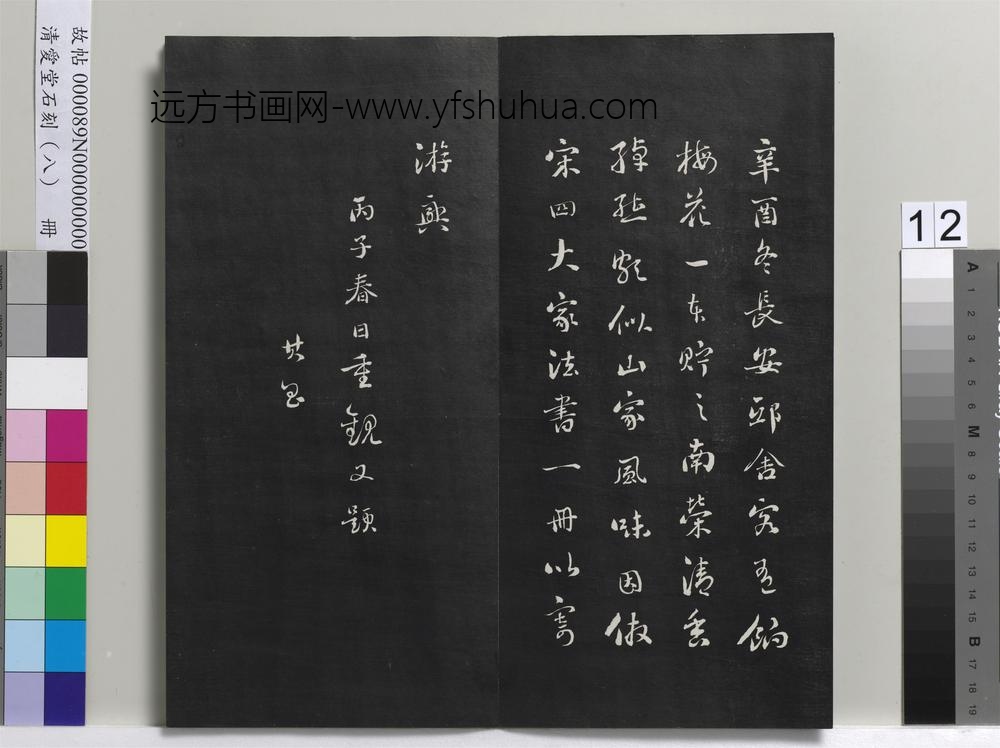 辛酉冬長安邸舍客有餉
梅花一本貯之南榮清香
綽然頗似山家風味因倣
宋四大家法書一冊以寄
游興
丙子春日重觀又題
其昌
远方书画网-www.yfshuhua.com
故帖 000089N000000000
清愛堂石刻(八) 冊
12
A 1 2 3 4 5 6 M 8 9 10 11 12 13 14 15 B 17 18 19